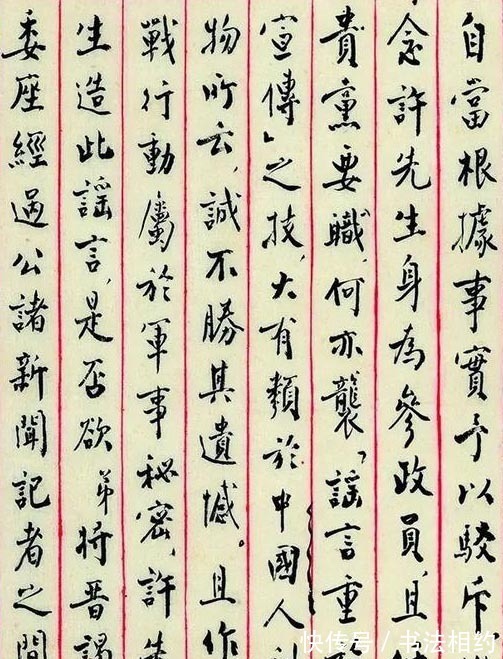 自當根據事實予以駁斥
念許先生身為參政員,且
貴黨要職,何亦襲「謠言重
宣傳」之技,大有類於中國人
物所云,誠不勝其遺憾。且作
戰行動屬於軍事秘密,許先
生造此謠言,是否欲弟將晉謁
委座經過公諸新聞記者之間
快传号 / 书法相约